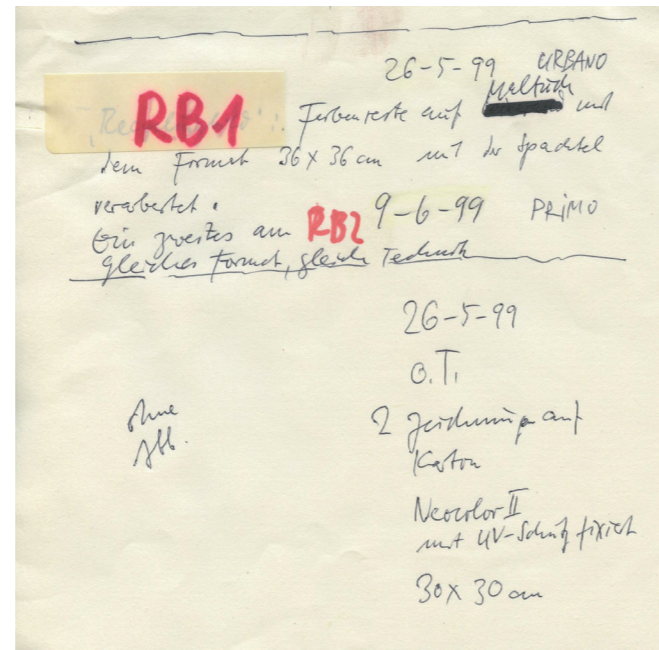 26-5-99 URBANO
RB1 : Farbenreste auf Maltuch und
dem Format 36 x 36 cm mit der Spachtel
verarbeitet.
Ein zweites am RB2 9-6-99 PRIMO
gleiches Format, gleiche Technik
26-5-99
O.T.
ohne
Abb.
2 Zeichnungen auf
Karton
Neocolor II
mit UV-Schutz fixiert
30 x 30 cm